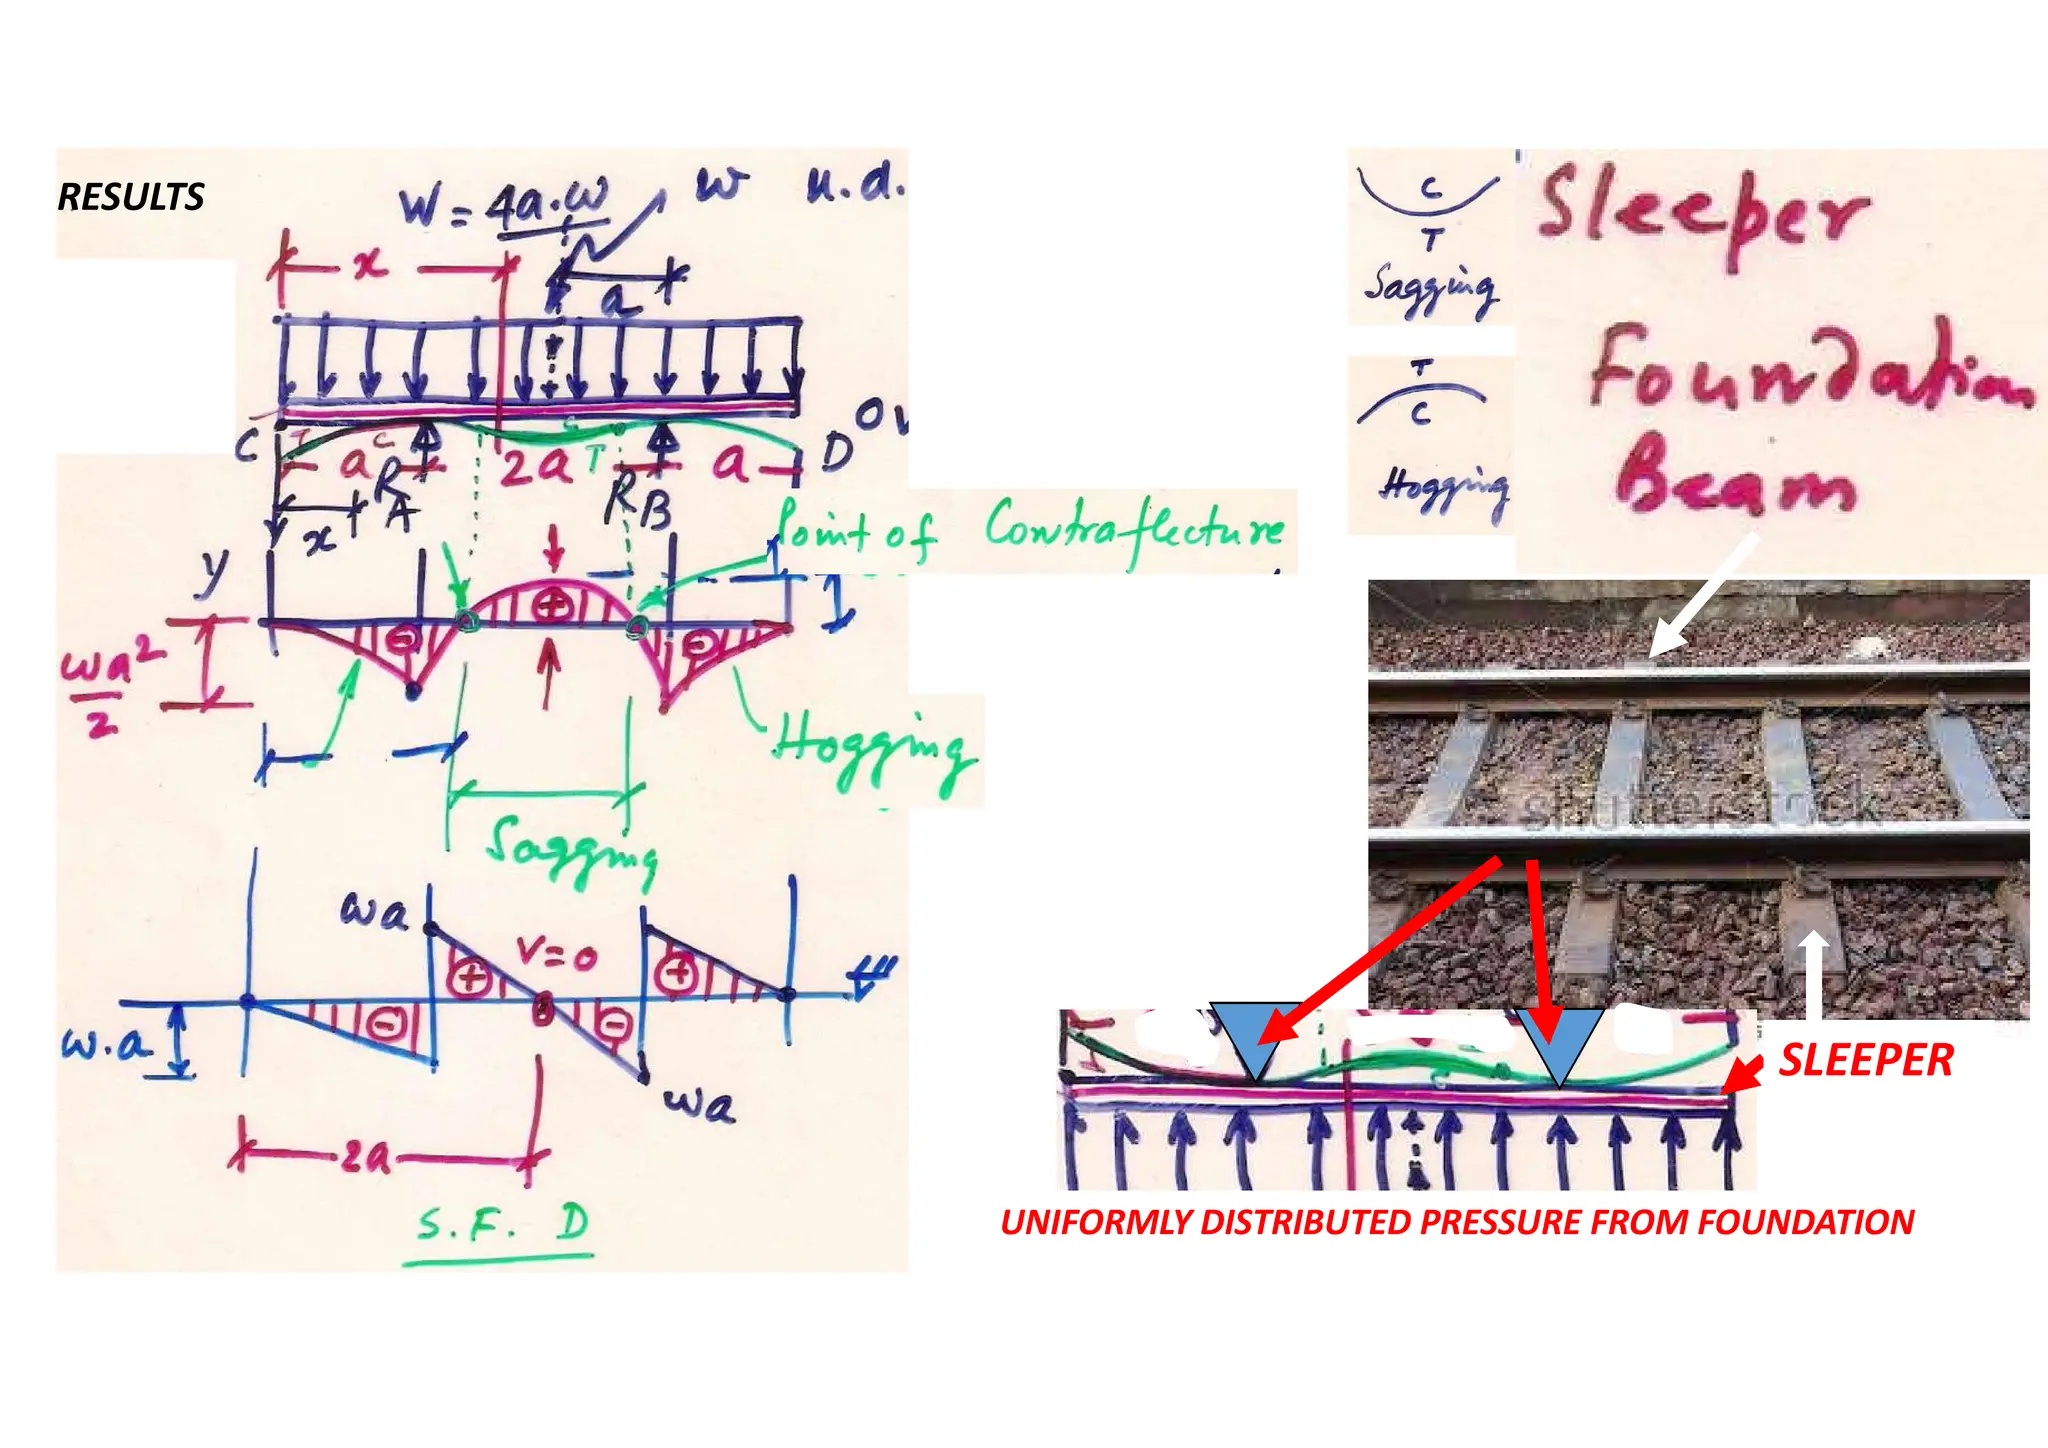 RESULTS
W = 4a.w
w u.d.
x
a
C
T
C
C
D
ov
a
2a
T
a
RA
RB
x
Point of Contraflecture
y
+
-
-
wa²/2
Hogging
Sagging
wa
V=0
+
+
-
-
w.a
wa
2a
S.F. D
C
T
Sagging
T
C
Hogging
Sleeper
Foundation
Beam
shutterstock
SLEEPER
UNIFORMLY DISTRIBUTED PRESSURE FROM FOUNDATION